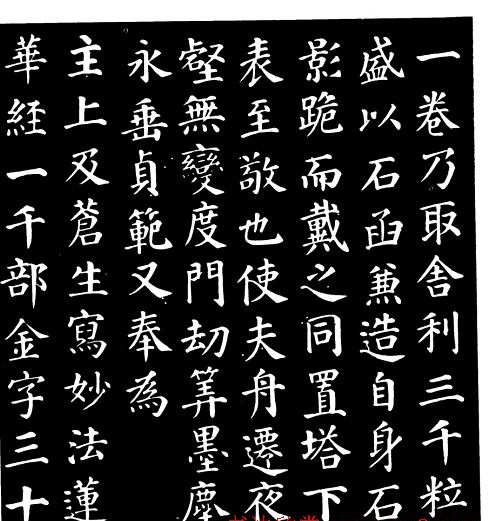 一卷乃取舍利三千粒
盛以石函兼造自身石
影跪而戴之同置塔下
表至敬也使夫舟遷夜
壑無變度門劫筭墨塵
永垂貞範又奉為
主上及蒼生寫妙法蓮
華経一千部金字三十